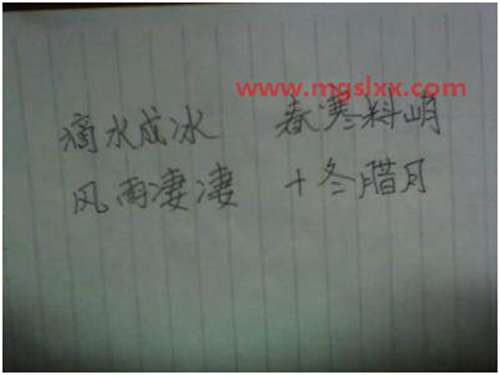 www.mgslxx.com
滴水成冰 春寒料峭
风雨凄凄 十冬腊月